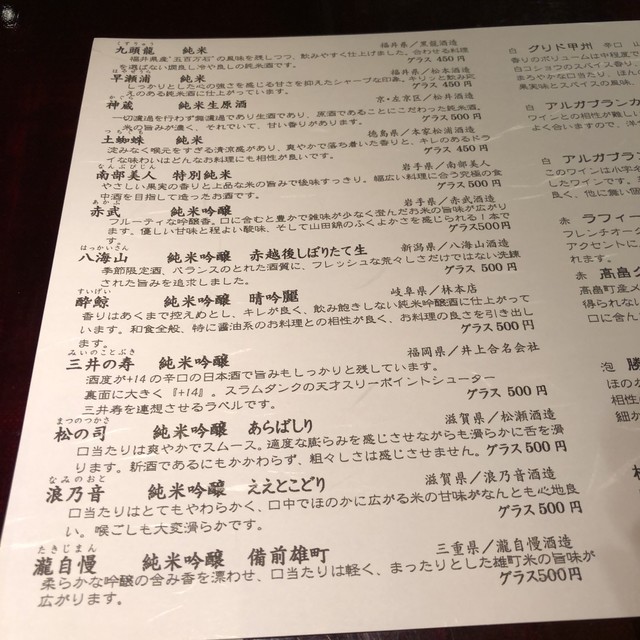 くずりゅう
九頭龍　純米　福井県／黒龍酒造
福井県産"五百万石"の風味を残しつつ、飲みやすく仕上げました。合わせる料理　グラス 450円
を選ばない燗良し冷や良しの純米酒です。
はやせうら
早瀬浦　純米　福井県／松本酒造
しっかりとした心の強さを感じる甘さを抑えたシャープな印象。キリッと飲み応　グラス 450円
えのある純米酒に仕上がっています。
かぐら
神蔵　純米生原酒　京・左京区／松井酒造
一切濾過を行わず無濾過であり生酒であり、原酒であることにこだわった純米酒。　グラス500円
米の旨みが濃く、それでいて、甘い香りがあります。
つちぐも
土蜘蛛　純米　徳島県／本家松浦酒造
淀みなく喉元をすぎる清涼感があり、爽やかで落ち着いた香りと、キレのあるドラ　グラス 450円
イな味わいはどんなお料理にも相性が良いです。
なんぶびじん
南部美人　特別純米　岩手県／南部美人
やさしい果実の香りと上品な米の旨みで後味すっきり。幅広い料理に合う究極の食　グラス500円
中酒を目指して造ったお酒です。
あかぶ
赤武　純米吟醸　岩手県／赤武酒造
フルーティな吟醸香。口に含むと豊かで雑味が少なく澄んだお米の旨味が広がり　グラス500円
ます。優しい甘味と程よい酸味、そして山田錦のふくよかさを感じられる！本で
す。
はっかいさん
八海山　純米吟醸　赤越後しぼりたて生　新潟県／八海山酒造
季節限定酒、バランスのとれた酒質に、フレッシュな荒々しさだけではない洗錬　グラス 500円
された旨みを追求しました。
すいげい
酔鯨　純米吟醸　晴吟麗　岐阜県／林本店
香りはあくまで控えめとし、キレが良く、飲み飽きしない純米吟醸酒に仕上がって　グラス 500円
います。和食全般、特に醤油系のお料理との相性が良く、お料理の良さを引き出し
ます。
みいのことぶき
三井の寿　純米吟醸　福岡県／井上合名会社
酒度が+14の辛口の日本酒で旨みもしっかりと残しています。　グラス 500円
裏面に大きく『+14』。スラムダンクの天才スリーポイントシューター
三井寿を連想させるラベルです。
まつのつかさ
松の司　純米吟醸　あらばしり　滋賀県／松瀬酒造
口当たりは爽やかでスムース。適度な膨らみを感じさせながらも滑らかに舌を滑　グラス500円
ります。新酒であるにもかかわらず、粗々しさは感じさせません。
なみのおと
浪乃音　純米吟醸　ええとこどり　滋賀県／浪乃音酒造
口当たりはとてもやわらかく、口中でほのかに広がる米の甘味がなんとも心地良　グラス500円
い。喉ごしも大変滑らかです。
たきじまん
瀧自慢　純米吟醸　備前雄町　三重県／瀧自慢酒造
柔らかな吟醸の含み香を漂わせ、口当たりは軽く、まったりとした雄町米の旨味が　グラス500円
広がります。
白　クリド甲州　辛口　山
香りのボリュームは中程度
白コショウのスパイス香り、
まろやかな口当たり、ほの
果実味とスパイス風味。
白　アルガブランカ
ワインとの相性が難しい
よく合いますので、洋食
白　アルガブラ
このワインは小字名
したワインです。ミ
良く、他に類い
赤　ラフィー
フレンチオーク
アクセントに
れます。
赤　高畠ク
高畠町産メ
得られない
口に含ん
泡　勝
ほのか
相性
細か